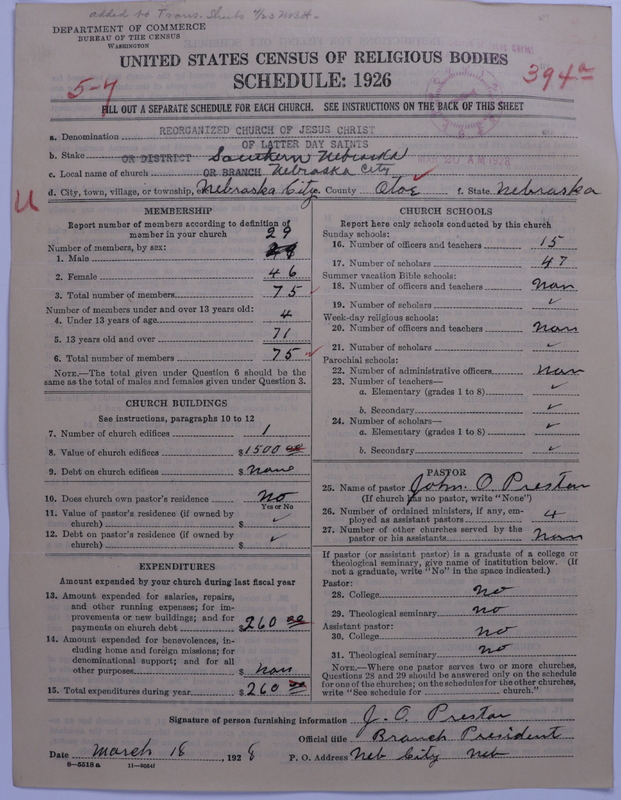 added to Trans. Sheets
DEPARTMENT OF COMMERCE
BUREAU OF THE CENSUS
WASHINGTON
UNITED STATES CENSUS OF RELIGIOUS BODIES
SCHEDULE: 1926
5-7
394a
FILL OUT A SEPARATE SCHEDULE FOR EACH CHURCH. SEE INSTRUCTIONS ON THE BACK OF THIS SHEET
a. Denomination REORGANIZED CHURCH OF JESUS CHRIST
OF LATTER DAY SAINTS
b. Stake OR DISTRICT Southern Nebraska
c. Local name of church OR BRANCH Nebraska City
d. City, town, village, or township, Nebraska City e. County Otoe f. State Nebraska
MEMBERSHIP
Report number of members according to definition of member in your church
Number of members, by sex:
1. Male 29
2. Female 46
3. Total number of members 75
Number of members under and over 13 years old:
4. Under 13 years of age 4
5. 13 years old and over 71
6. Total number of members 75
NOTE.—The total given under Question 6 should be
same as the total of males and females given under Question 3.
CHURCH BUILDINGS
See instructions, paragraphs 10 to 12
7. Number of church edifices 1
8. Value of church edifices $1500 00
9. Debt on church edifices $ none
10. Does church own pastor's residence No
Yes or No
11. Value of pastor's residence (if owned by
church) $ ✓
12. Debt on pastor's residence (if owned by
church) $ ✓
EXPENDITURES
Amount expended by your church during last fiscal year
13. Amount expended for salaries, repairs,
and other running expenses; for im-
provements or new buildings; and for
payments on church debt $260 00
14. Amount expended for benevolences, in-
cluding home and foreign missions; for
denominational support; and for all
other purposes $ non
15. Total expenditures during year $260 00
CHURCH SCHOOLS
Report here only schools conducted by this church
Sunday schools:
16. Number of officers and teachers 15
17. Number of scholars 47
Summer vacation Bible schools:
18. Number of officers and teachers non
19. Number of scholars ✓
Week-day religious schools:
20. Number of officers and teachers non
21. Number of scholars ✓
Parochial schools:
22. Number of administrative officers non
23. Number of teachers—
a. Elementary (grades 1 to 8) ✓
b. Secondary ✓
24. Number of scholars—
a. Elementary (grades 1 to 8) ✓
b. Secondary ✓
PASTOR
25. Name of pastor John. O. Preston
(If church has no pastor, write "None")
26. Number of ordained ministers, if any, em-
ployed as assistant pastors 4
27. Number of other churches served by the
pastor or his assistants non
If pastor (or assistant pastor) is a graduate of a college or
theological seminary, give name of institution below. (If
not a graduate, write "No" in the space indicated.)
Pastor:
28. College no
29. Theological seminary no
Assistant pastor:
30. College No
31. Theological seminary no
NOTE.—Where one pastor serves two or more churches,
Questions 28 and 29 should be answered only on the schedule
for one of the churches; on the schedules for the other churches,
write "See schedule for church."
Signature of person furnishing information J. O. Preston
Official title Branch President
Date March 18, 1928 P. O. Address Neb City Neb
8-5518a 11-9054f